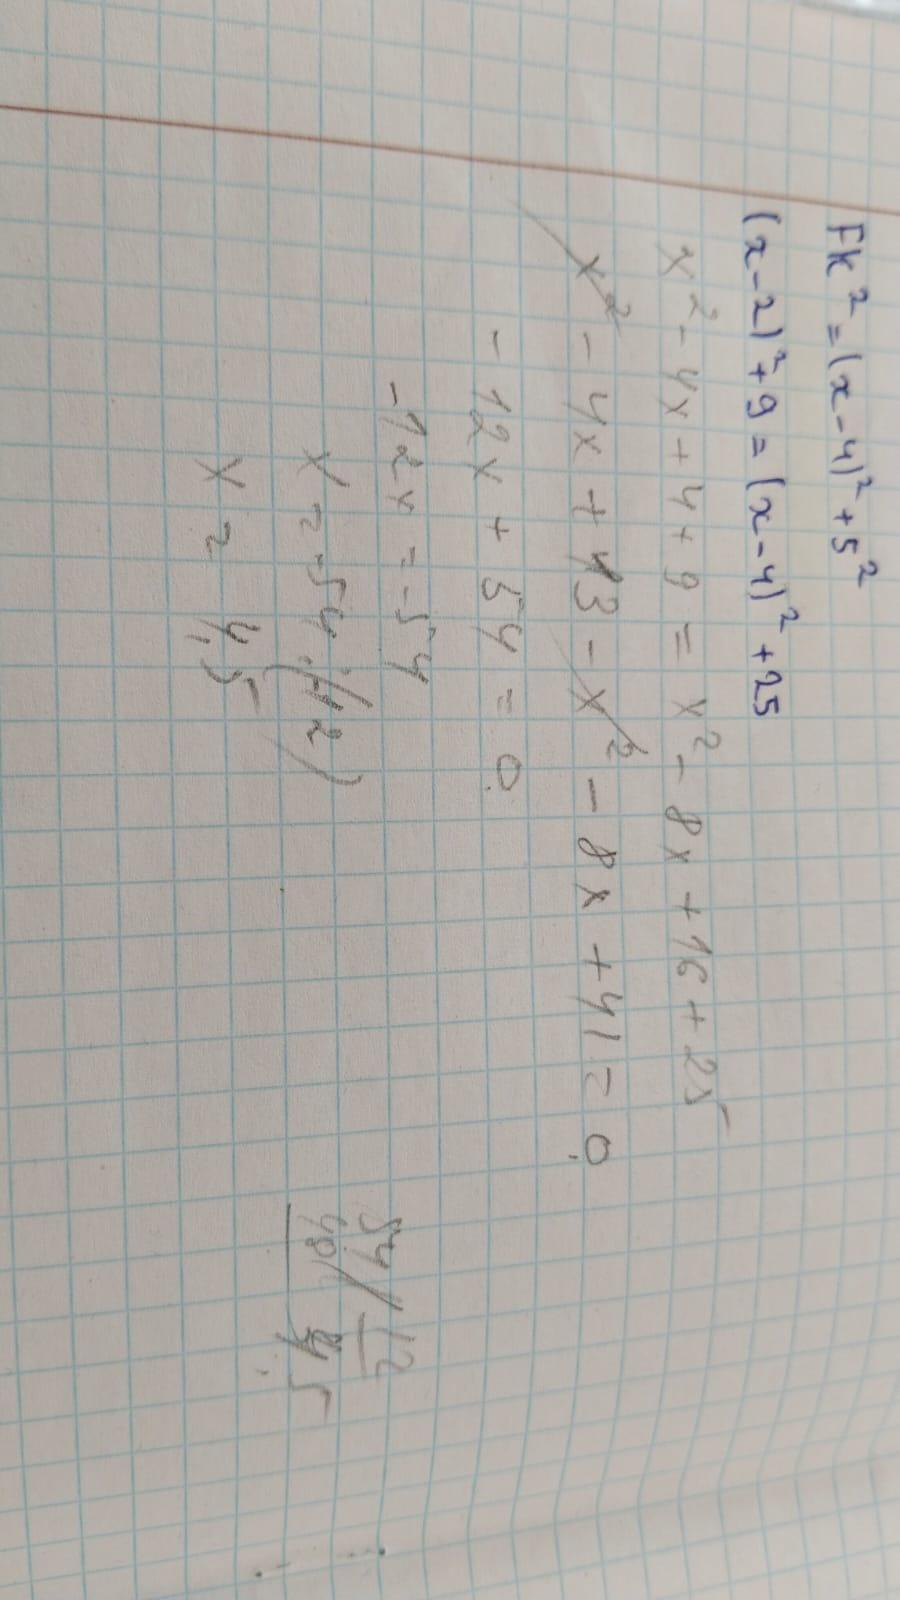 FK² = (x-4)² + 5²
(x-2)² + 9 = (x-4)² + 25
x² - 4x + 4 + 9 = x² - 8x + 16 + 25
x² - 4x + 13 - x² - 8x + 41 = 0
- 12x + 54 = 0
-12x = -54
x = -54 : (-12)
x = 4,5
54 | 12
48 | 4,5